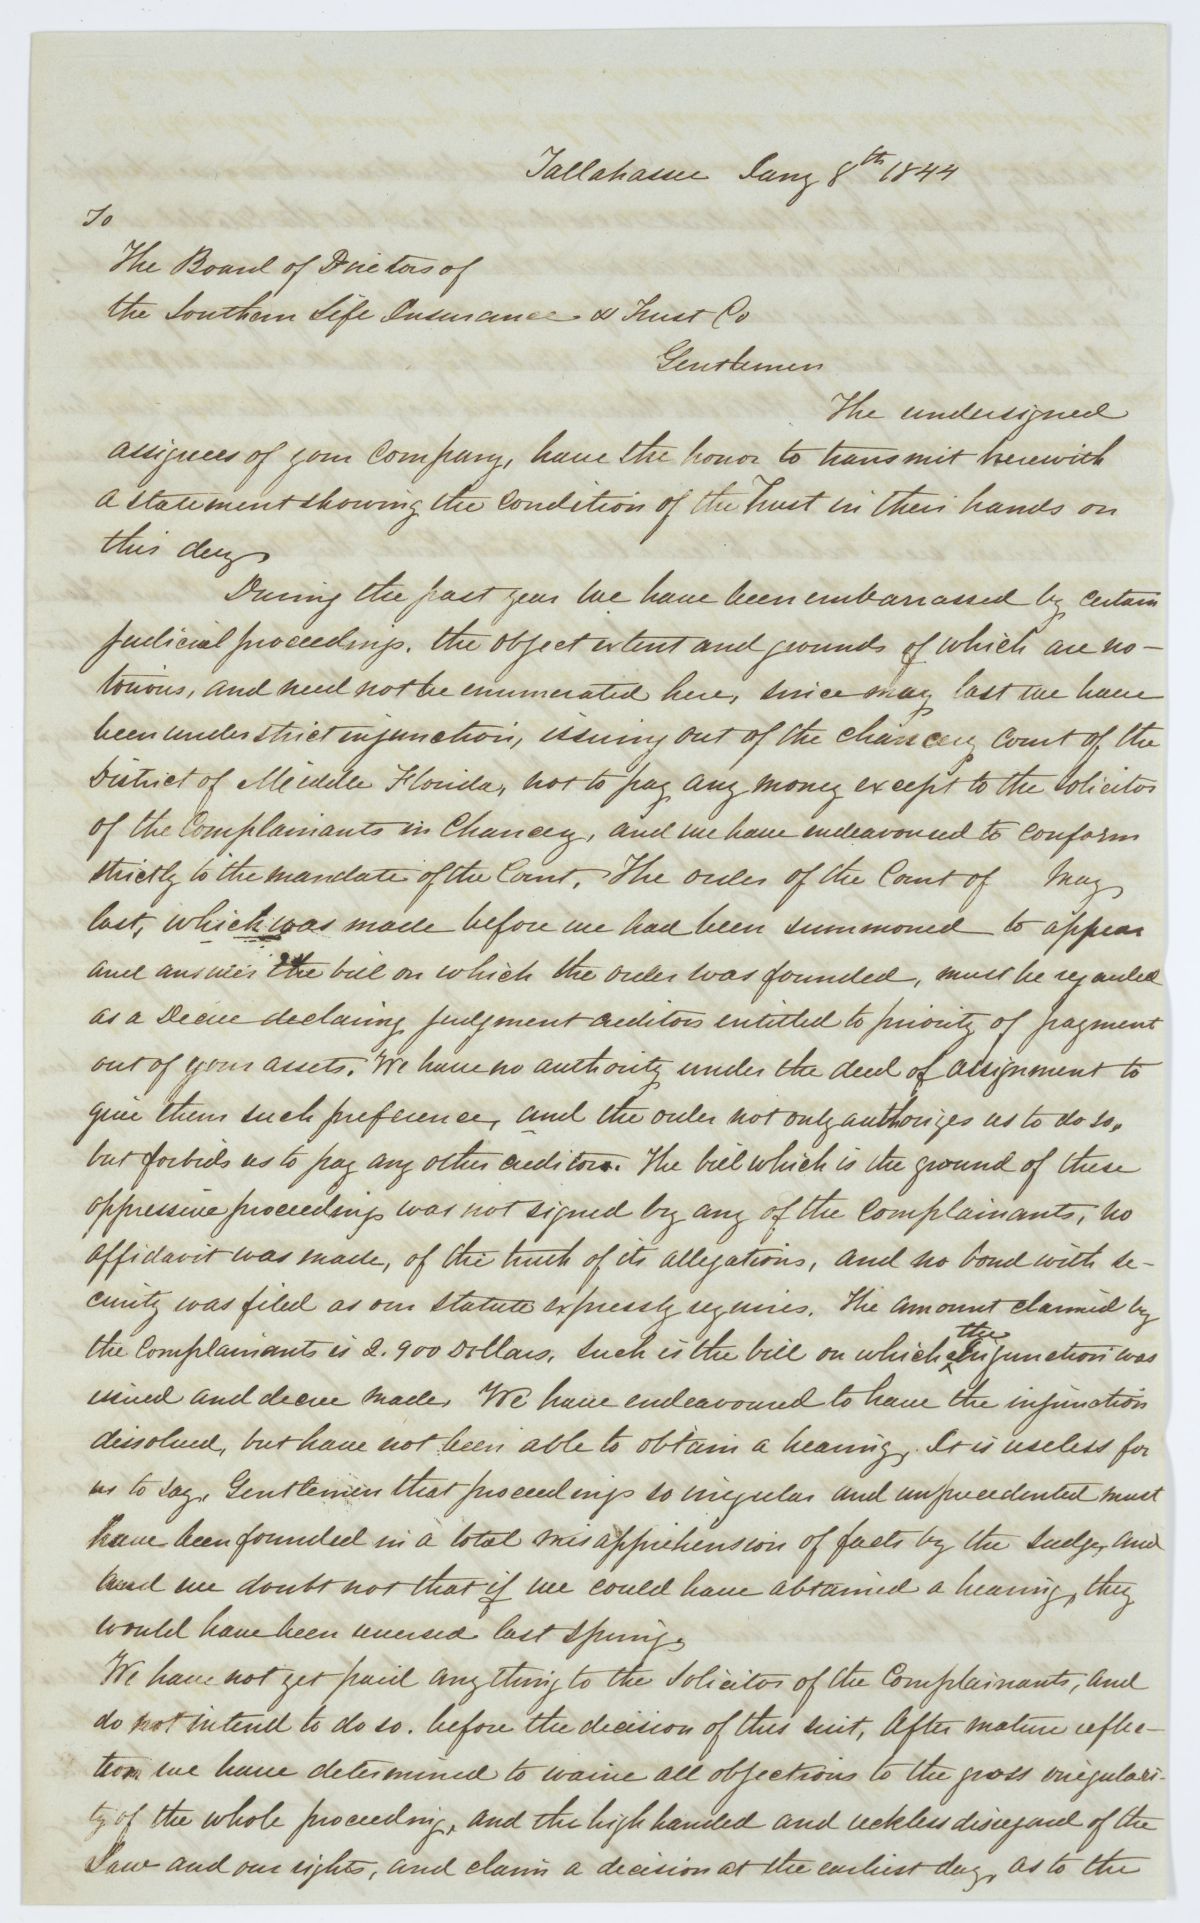 Tallahassee Jany 8th 1844
To
The Board of Directors of
the Southern Life Insurance & Trust Co
Gentlemen
The undersigned
assignees of your Company, have the honor to transmit herewith
a statement showing the condition of the Trust in their hands on
this day.
During the past year we have been embarrassed by certain
judicial proceedings. the object extent and grounds of which are no-
torious, and need not be enumerated here, since may last we have
been under strict injunction, issuing out of the chancery Court of the
District of Middle Florida, not to pay any money except to the solicitor
of the Complainants in Chancery, and we have endeavoured to conform
strictly to the mandate of the Court. The order of the Court of May
last, which was made before we had been summoned to appear
and answer the bill on which the order was founded, must be regarded
as a Decree declaring judgment creditors entitled to priority of payment
out of your assets. We have no authority under the deed of assignment to
give them such preference, and the order not only authorizes us to do so,
but forbids us to pay any other creditors. The bill which is the ground of these
oppressive proceedings was not signed by any of the Complainants, no
affidavit was made, of the truth of its allegations, and no bond with se-
curity was filed as our statute expressly requires. The amount claimed by
the Complainants is 2.900 Dollars. Such is the bill on which the Injunction was
issued and decree made. We have endeavoured to have the injunction
dissolved, but have not been able to obtain a hearing. It is useless for
us to say, Gentlemen that proceedings so irregular and unprecedented must
have been founded in a total misapprehension of facts by the Judge, and
and we doubt not that if we could have obtained a hearing, they
would have been reversed last spring.
We have not yet paid any thing to the Solicitor of the Complainants, and
do not intend to do so. before the decision of this suit. After mature reflec-
tion we have determined to waive all objections to the gross irregulari-
ty of the whole proceeding, and the high handed and reckless disregard of the
Law and our rights, and claim a decision at the earliest day, as to the